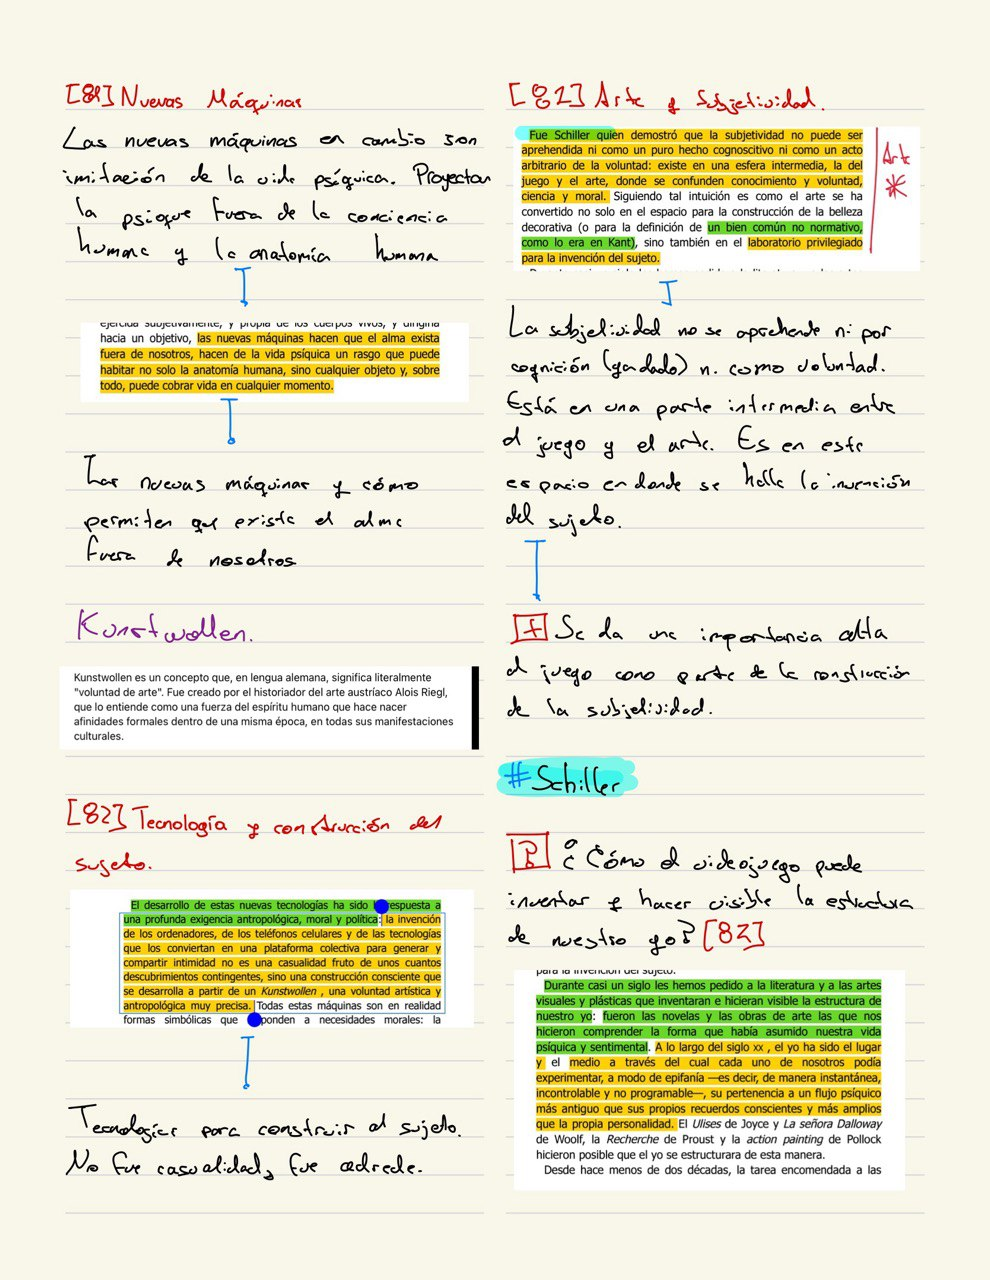 [81] Nuevas Máquinas
Las nuevas máquinas en cambio son
imitación de la vida psíquica. Proyectan
la psique fuera de la conciencia
humana y la anatomía humana
ejercida subjetivamente, y propia de los cuerpos vivos, y dirigirla
hacia un objetivo, las nuevas máquinas hacen que el alma exista
fuera de nosotros, hacen de la vida psíquica un rasgo que puede
habitar no solo la anatomía humana, sino cualquier objeto y, sobre
todo, puede cobrar vida en cualquier momento.
Las nuevas máquinas y cómo
permiten que exista el alma
fuera de nosotros
Kunstwollen.
Kunstwollen es un concepto que, en lengua alemana, significa literalmente
"voluntad de arte". Fue creado por el historiador del arte austríaco Alois Riegl,
que lo entiende como una fuerza del espíritu humano que hace nacer
afinidades formales dentro de una misma época, en todas sus manifestaciones
culturales.
[82] Tecnología y construcción del
sujeto.
El desarrollo de estas nuevas tecnologías ha sido respuesta a
una profunda exigencia antropológica, moral y política: la invención
de los ordenadores, de los teléfonos celulares y de las tecnologías
que los conviertan en una plataforma colectiva para generar y
compartir intimidad no es una casualidad fruto de unos cuantos
descubrimientos contingentes, sino una construcción consciente que
se desarrolla a partir de un Kunstwollen , una voluntad artística y
antropológica muy precisa. Todas estas máquinas son en realidad
formas simbólicas que ponden a necesidades morales: la
Tecnologías para construir al sujeto.
No fue casualidad, fue adrede.
[82] Arte y Subjetividad.
Fue Schiller quien demostró que la subjetividad no puede ser
aprehendida ni como un puro hecho cognoscitivo ni como un acto
arbitrario de la voluntad: existe en una esfera intermedia, la del
juego y el arte, donde se confunden conocimiento y voluntad,
ciencia y moral. Siguiendo tal intuición es como el arte se ha
convertido no solo en el espacio para la construcción de la belleza
decorativa (o para la definición de un bien común no normativo,
como lo era en Kant), sino también en el laboratorio privilegiado
para la invención del sujeto.
Arte
La subjetividad no se aprehende ni por
cognición ni como voluntad.
Está en una parte intermedia entre
el juego y el arte. Es en este
espacio en donde se halla la invención
del sujeto.
Se da una importancia alta
al juego como parte de la construcción
de la subjetividad.
# Schiller
[?] ¿Cómo el videojuego puede
inventar y hacer visible la estructura
de nuestro yo? [82]
para la invención del sujeto.
Durante casi un siglo les hemos pedido a la literatura y a las artes
visuales y plásticas que inventaran e hicieran visible la estructura de
nuestro yo: fueron las novelas y las obras de arte las que nos
hicieron comprender la forma que había asumido nuestra vida
psíquica y sentimental. A lo largo del siglo xx , el yo ha sido el lugar
y el medio a través del cual cada uno de nosotros podía
experimentar, a modo de epifanía —es decir, de manera instantánea,
incontrolable y no programable—, su pertenencia a un flujo psíquico
más antiguo que sus propios recuerdos conscientes y más amplios
que la propia personalidad. El Ulises de Joyce y La señora Dalloway
de Woolf, la Recherche de Proust y la action painting de Pollock
hicieron posible que el yo se estructurara de esta manera.
Desde hace menos de dos décadas, la tarea encomendada a las